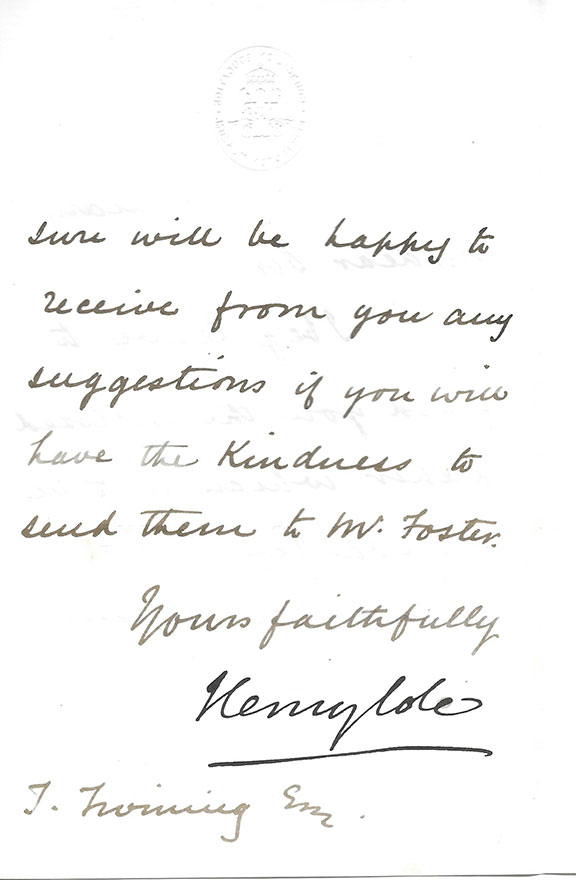 sure will be happy to
receive from you any
suggestions if you will
have the Kindness to
send them to Mr. Foster.
Yours faithfully
Henry Cole
T. Twining Esq.